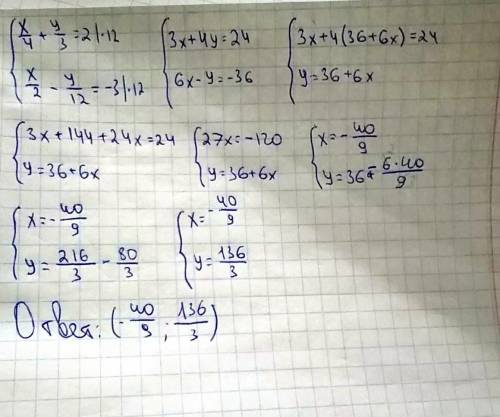 x/4 + y/3 = 2 | ·12
x/2 - y/12 = -3 | ·12
3x+4y=24
6x-y=-36
3x+4(36+6x)=24
y=36+6x
3x+144+24x=24
y=36+6x
27x=-120
y=36+6x
x=-40/9
y=36-6·40/9
x=-40/9
y=216/3-80/3
x=-40/9
y=136/3
Ответ: (-40/9 ; 136/3)